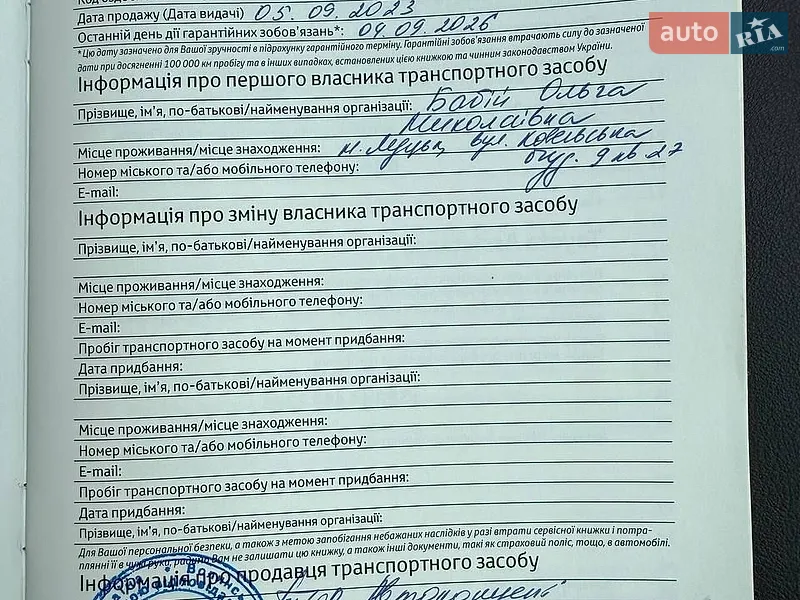 Дата продажу (Дата видачі) 05.09.2023
Останній день дії гарантійних зобов'язань*: 04.09.2026
*Цю дату зазначено для Вашої зручності в підрахунку гарантійного терміну. Гарантійні зобов'язання втрачають силу до зазначеної
дати при досягненні 100 000 км пробігу та в інших випадках, встановлених цією книжкою та чинним законодавством України.
auto RIA .com
Інформація про першого власника транспортного засобу
Прізвище, ім'я, по-батькові/найменування організації: Бабій Ольга
Миколаївна
Місце проживання/місце знаходження: м. Луцьк, вул. Ковельська
Номер міського та/або мобільного телефону: буд. 9 кв 27
E-mail:
Інформація про зміну власника транспортного засобу
Прізвище, ім'я, по-батькові/найменування організації:
Місце проживання/місце знаходження:
Номер міського та/або мобільного телефону:
E-mail:
Пробіг транспортного засобу на момент придбання:
Дата придбання:
Прізвище, ім'я, по-батькові/найменування організації:
Місце проживання/місце знаходження:
Номер міського та/або мобільного телефону:
E-mail:
Пробіг транспортного засобу на момент придбання:
Дата придбання:
Прізвище, ім'я, по-батькові/найменування організації:
Для Вашої персональної безпеки, а також з метою запобігання небажаних наслідків у разі втрати сервісної книжки і потра-
плянні її в чужі руки, радимо Вам не залишати цю книжку, а також інші документи, такі як страховий поліс, тощо, в автомобілі.
Інформація про продавця транспортного засобу